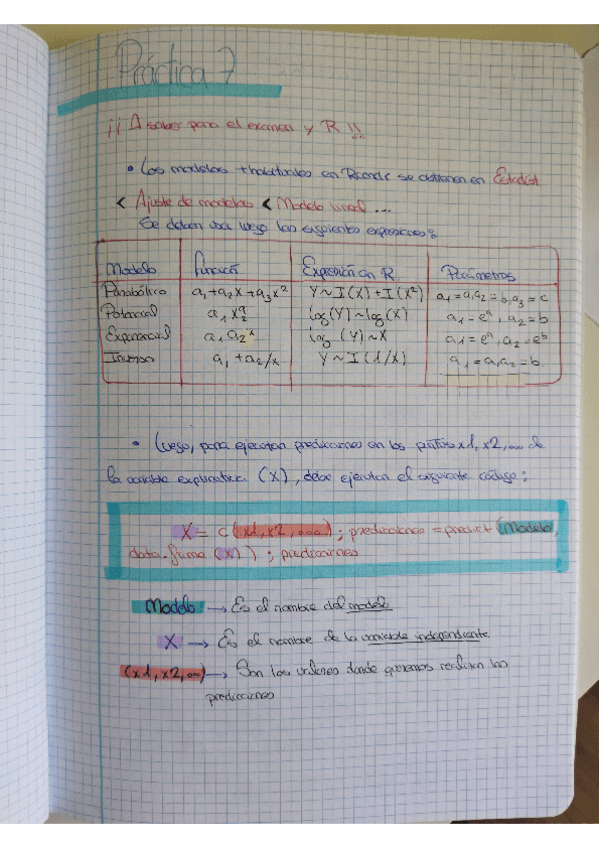 Práctica 7
¡¡ A saber para el examen y R !!
• Los modelos + habituales en Rcmdr se obtienen en Estadíst
< Ajuste de modelos < Modelo lineal ...
Se deben usar luego las siguientes expresiones:
Modelo Función Expresión en R Parámetros
Parabólico a₁+a₂x+a₃x² Y~I(X)+I(X²) a₁=a, a₂=b, a₃=c
Potencial log(Y)~log(X) a₁=eᵃ, a₂=b
Exponencial a₁a₂ˣ log(Y)~X a₁=eᵃ, a₂=eᵇ
Inverso a₁+a₂/x Y~I(1/X) a₁=a, a₂=b
• Luego, para ejecutar predicciones en los puntos x1, x2, ... de
la variable explicativa (X), debe ejecutar el siguiente código:
X = c(x1, x2, ...); predicciones = predict(Modelo,
data.frame(X)); predicciones
Modelo → Es el nombre del modelo
X → Es el nombre de la variable independiente
(x1, x2, ...) → Son los valores donde queremos realizar las
predicciones